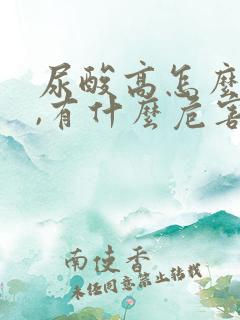 尿酸高怎麼
,有什麼危害
南使香
未经同意禁止转载